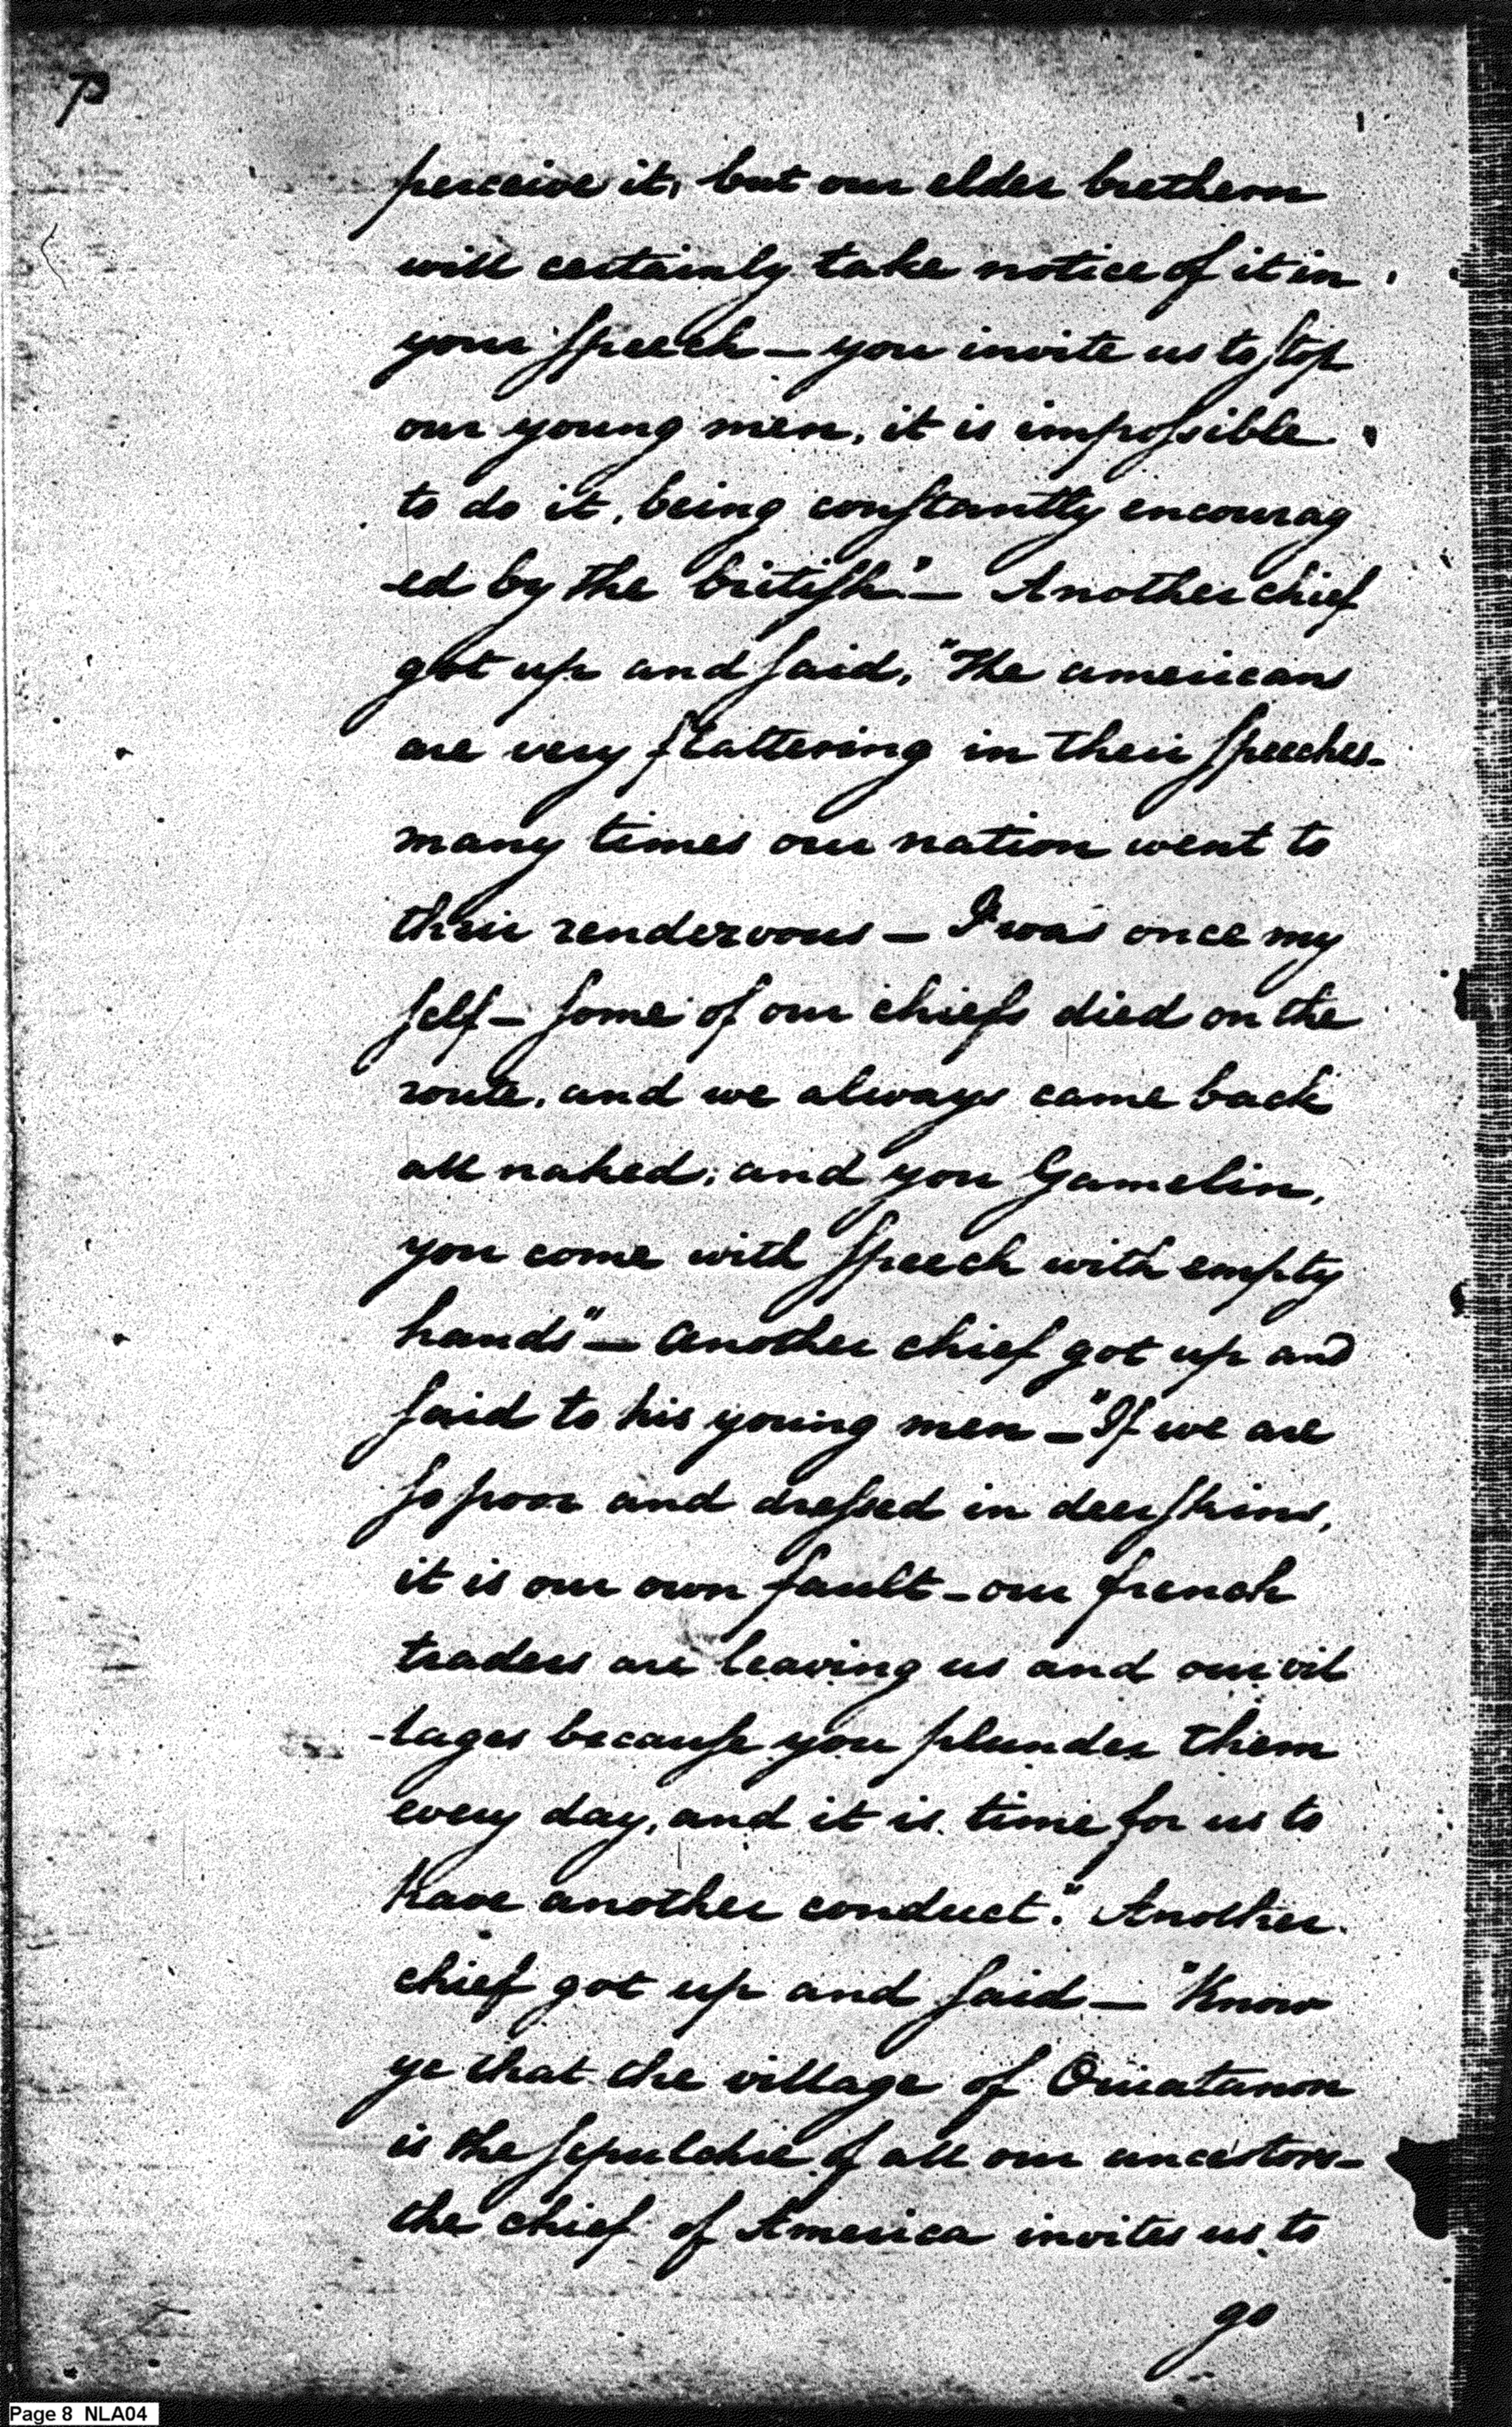 perceive it, but our elder brethern
will certainly take notice of it in
your speech — you invite us to stop
our young men, it is impossible
to do it, being constantly encourag
-ed by the british" — Another chief
got up and said, "The americans
are very flattering in their speeches-
many times our nation went to
their rendezvous — I was once my
self — some of our chiefs died on the
route, and we always came back
all naked; and you Gamelin,
you come with speech with empty
hands" — Another chief got up and
said to his young men — "If we are
so poor and dressed in deer skins,
it is our own fault - our french
traders are leaving us and our vil
-lages because you plunder them
every day, and it is time for us to
have another conduct". Another
chief got up and said — "Know
ye that the village of Ouiatanon
is the sepulchre of all our ancestors-
the chief of America invites us to
go
Page 8 NLA04